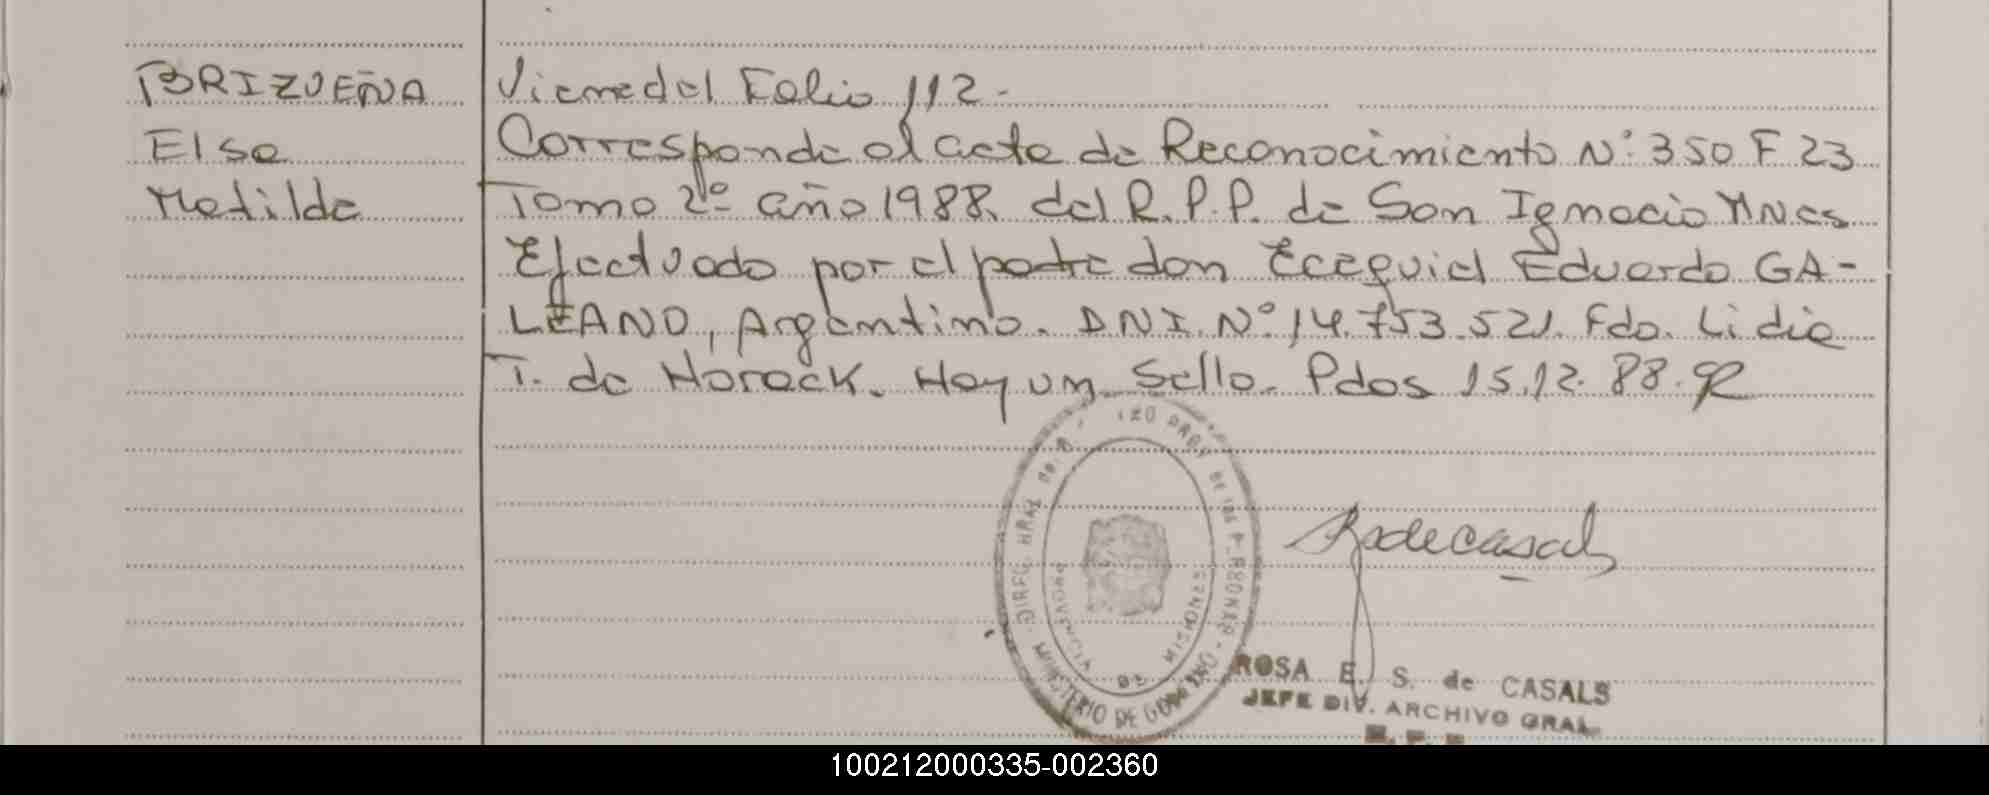 BRIZUEÑA
Elsa
Matilde
Viene del Folio 112.-
Corresponde al acta de Reconocimiento Nº 350 F 23
Tomo 2º año 1988. del R.P.P. de San Ignacio Mnes
Efectuado por el padre don Ecequiel Eduardo GA-
LEANO, Argentino. DNI. Nº 14.753.521. Fdo. Lidia
T. de Horack. Hay un Sello. Pdas 15.12.88.
MINISTERIO DE GOBIERNO
PROVINCIA DE MISIONES
ROSA E. S. de CASALS
JEFE DIV. ARCHIVO GRAL.
100212000335-002360